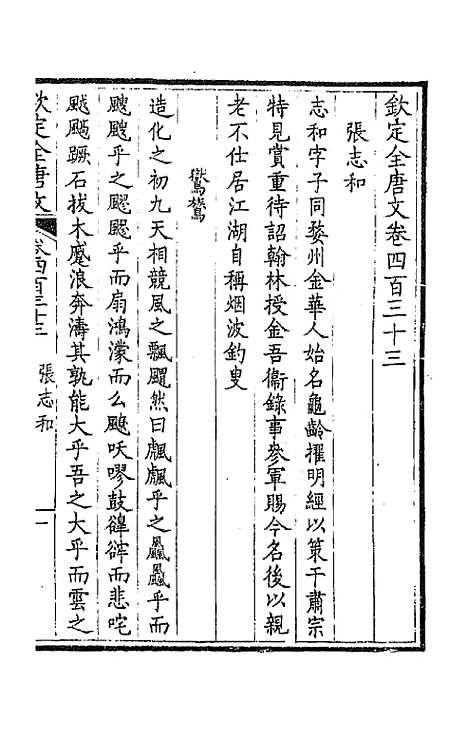 欽定全唐文卷四百三十三
張志和
志和字子同婺州金華人始名龜齡擢明經以策干肅宗
特見賞重待詔翰林授金吾衞錄事參軍賜今名後以親
老不仕居江湖自稱烟波釣叟
鸑鷟
造化之初九天相競風之飄䬙然曰飆飆乎之飍飍乎而
颼颼乎之颸颸乎而扇鴻濛而么䬍呋嘐鼓䪦䍐而悲咤
颰䬂蹶石拔木蹙浪奔濤其孰能大乎吾之大乎而雲之
欽定全唐文
卷四百三十三
張志和
一